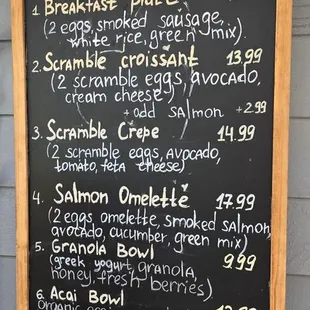 1. Breakfast Plate
(2 eggs, smoked sausage,
white rice, green mix).
2. Scramble croissant 13.99
(2 scramble eggs, avocado,
cream cheese)
+ add salmon +2.99
3. Scramble Crepe 14.99
(2 scramble eggs, avocado,
tomato, feta cheese)
4. Salmon Omelette 17.99
(2 eggs omelette, smoked salmon,
avocado, cucumber, green mix)
5. Granola Bowl 9.99
(greek yogurt, granola,
honey, fresh berries)
6. Acai Bowl